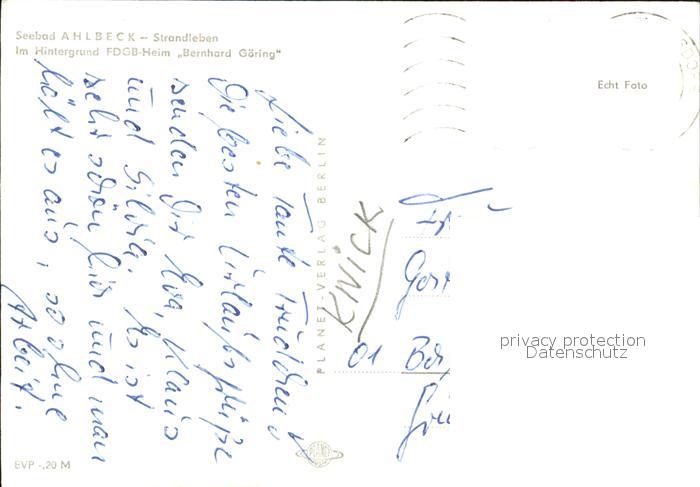 Seebad AHLBECK – Strandleben
Im Hintergrund FDGB-Heim „Bernhard Göring"
Echt Foto
Liebe Tante Trudchen!
Die besten Urlaubsgrüße
senden Dir Eva, Klaus
und Silvia. Es ist
sehr schön hier und man
hält es aus, so ohne
Arbeit.
PLANET-VERLAG BERLIN
KNICK
01
privacy protection
Datenschutz
PLANET
EVP -,20 M